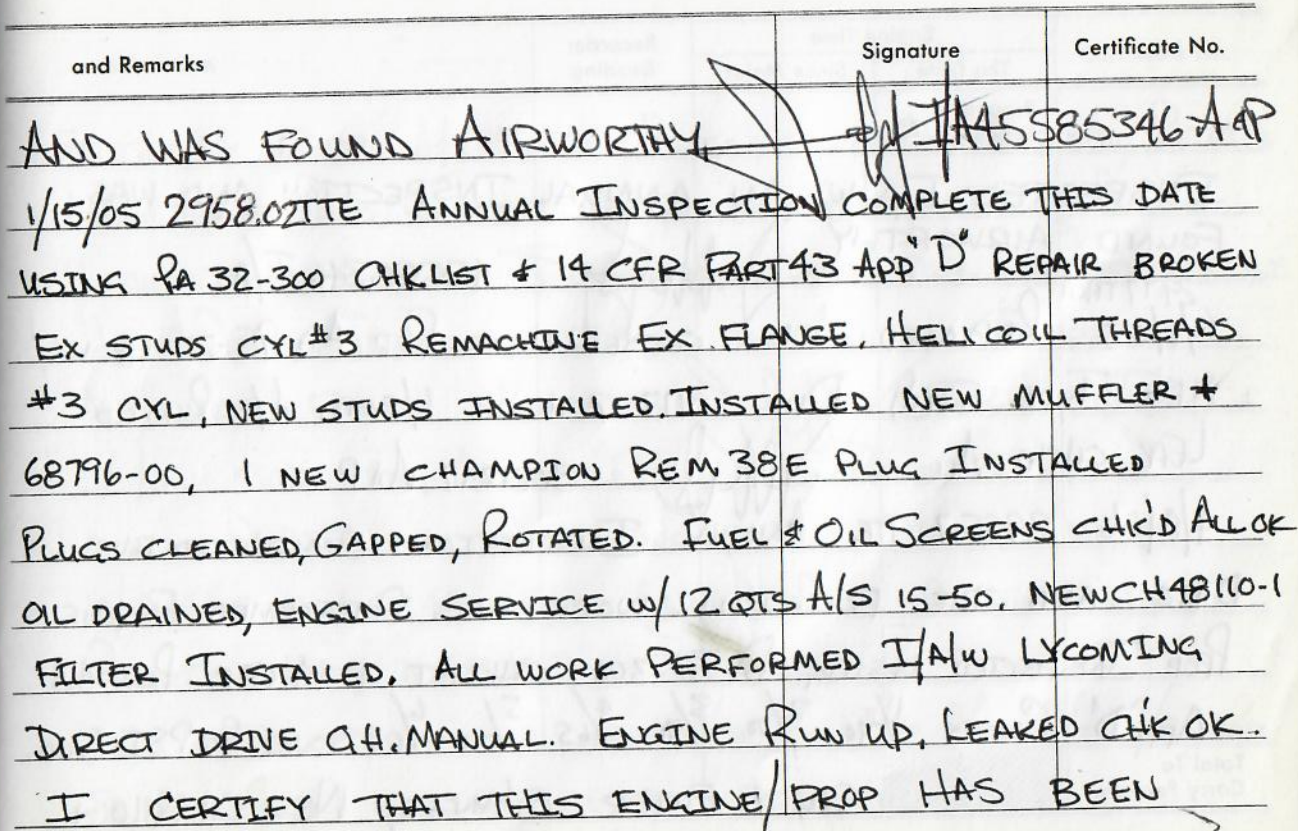 and Remarks Signature Certificate No.
AND WAS FOUND AIRWORTHY IA45585346 A&P
1/15/05 2958.02TTE ANNUAL INSPECTION COMPLETE THIS DATE
USING PA 32-300 CHKLIST & 14 CFR PART 43 APP "D" REPAIR BROKEN
EX STUDS CYL #3 REMACHINE EX FLANGE, HELICOIL THREADS
#3 CYL, NEW STUDS INSTALLED, INSTALLED NEW MUFFLER #
68796-00, 1 NEW CHAMPION REM 38E PLUG INSTALLED
PLUGS CLEANED, GAPPED, ROTATED. FUEL & OIL SCREENS CHK'D ALL OK
OIL DRAINED, ENGINE SERVICE W/ 12 QTS A/S 15-50. NEW CH48110-1
FILTER INSTALLED. ALL WORK PERFORMED I/A/W LYCOMING
DIRECT DRIVE O.H. MANUAL. ENGINE RUN UP, LEAKED CHK OK.
I CERTIFY THAT THIS ENGINE/PROP HAS BEEN